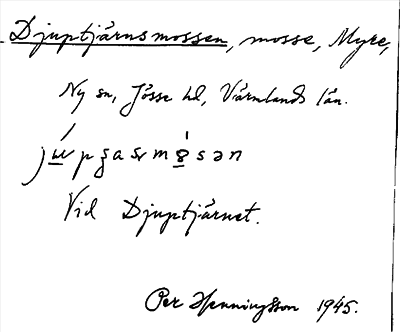 Djuptjärnsmossen, mosse, Myre,
Ny sn, Jösse hd, Värmlands län.
Vid Djuptjärnet.
Per Henningsson 1945.